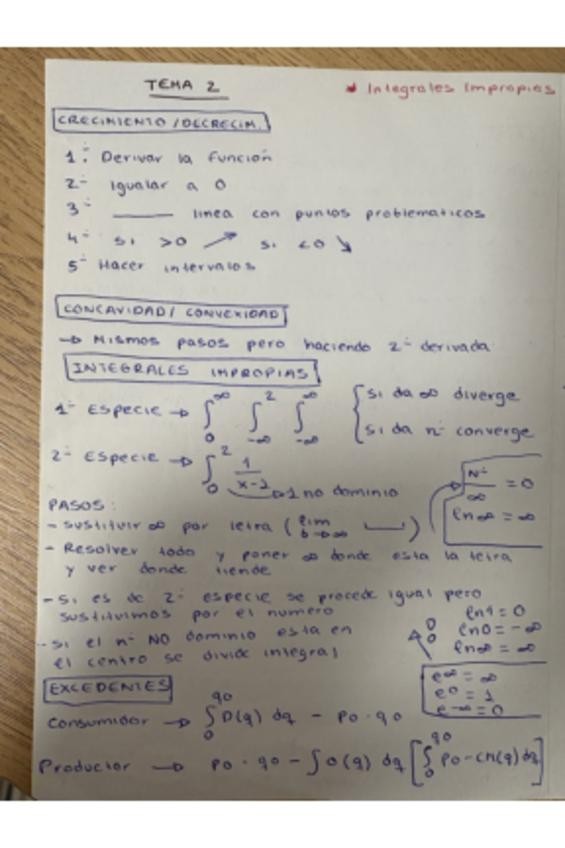 TEMA 2
* Integrales Impropias
CRECIMIENTO / DECRECIM.
1º: Derivar la función
2º Igualar a 0
3º ______ linea con puntos problematicos
4º si >0 ↗ si <0 ↘
5º Hacer intervalos
CONCAVIDAD / CONVEXIDAD
→ Mismos pasos pero haciendo 2º derivada
INTEGRALES IMPROPIAS
1º Especie → ∫₀^∞ ∫_{-∞}^2 ∫_{-∞}^∞ { si da ∞ diverge
si da nº converge
2º Especie → ∫₀^2 1/(x-2) → 1 no dominio
Nº/∞ = 0
ln∞ = ∞
PASOS:
- Sustituir ∞ por letra (lim b→∞ ⎵)
- Resolver todo y poner ∞ donde esta la letra
y ver donde tiende
- Si es de 2º especie se procede igual pero
sustituimos por el numero
- Si el nº NO dominio esta en
el centro se divide integral
ln1 = 0
ln0 = -∞
ln∞ = ∞
e^∞ = ∞
e^0 = 1
e^-∞ = 0
EXCEDENTES
Consumidor → ∫₀^q0 D(q) dq - p0 · q0
Productor → p0 · q0 - ∫O(q) dq [∫₀^q0 p0 - cm(q) dq]